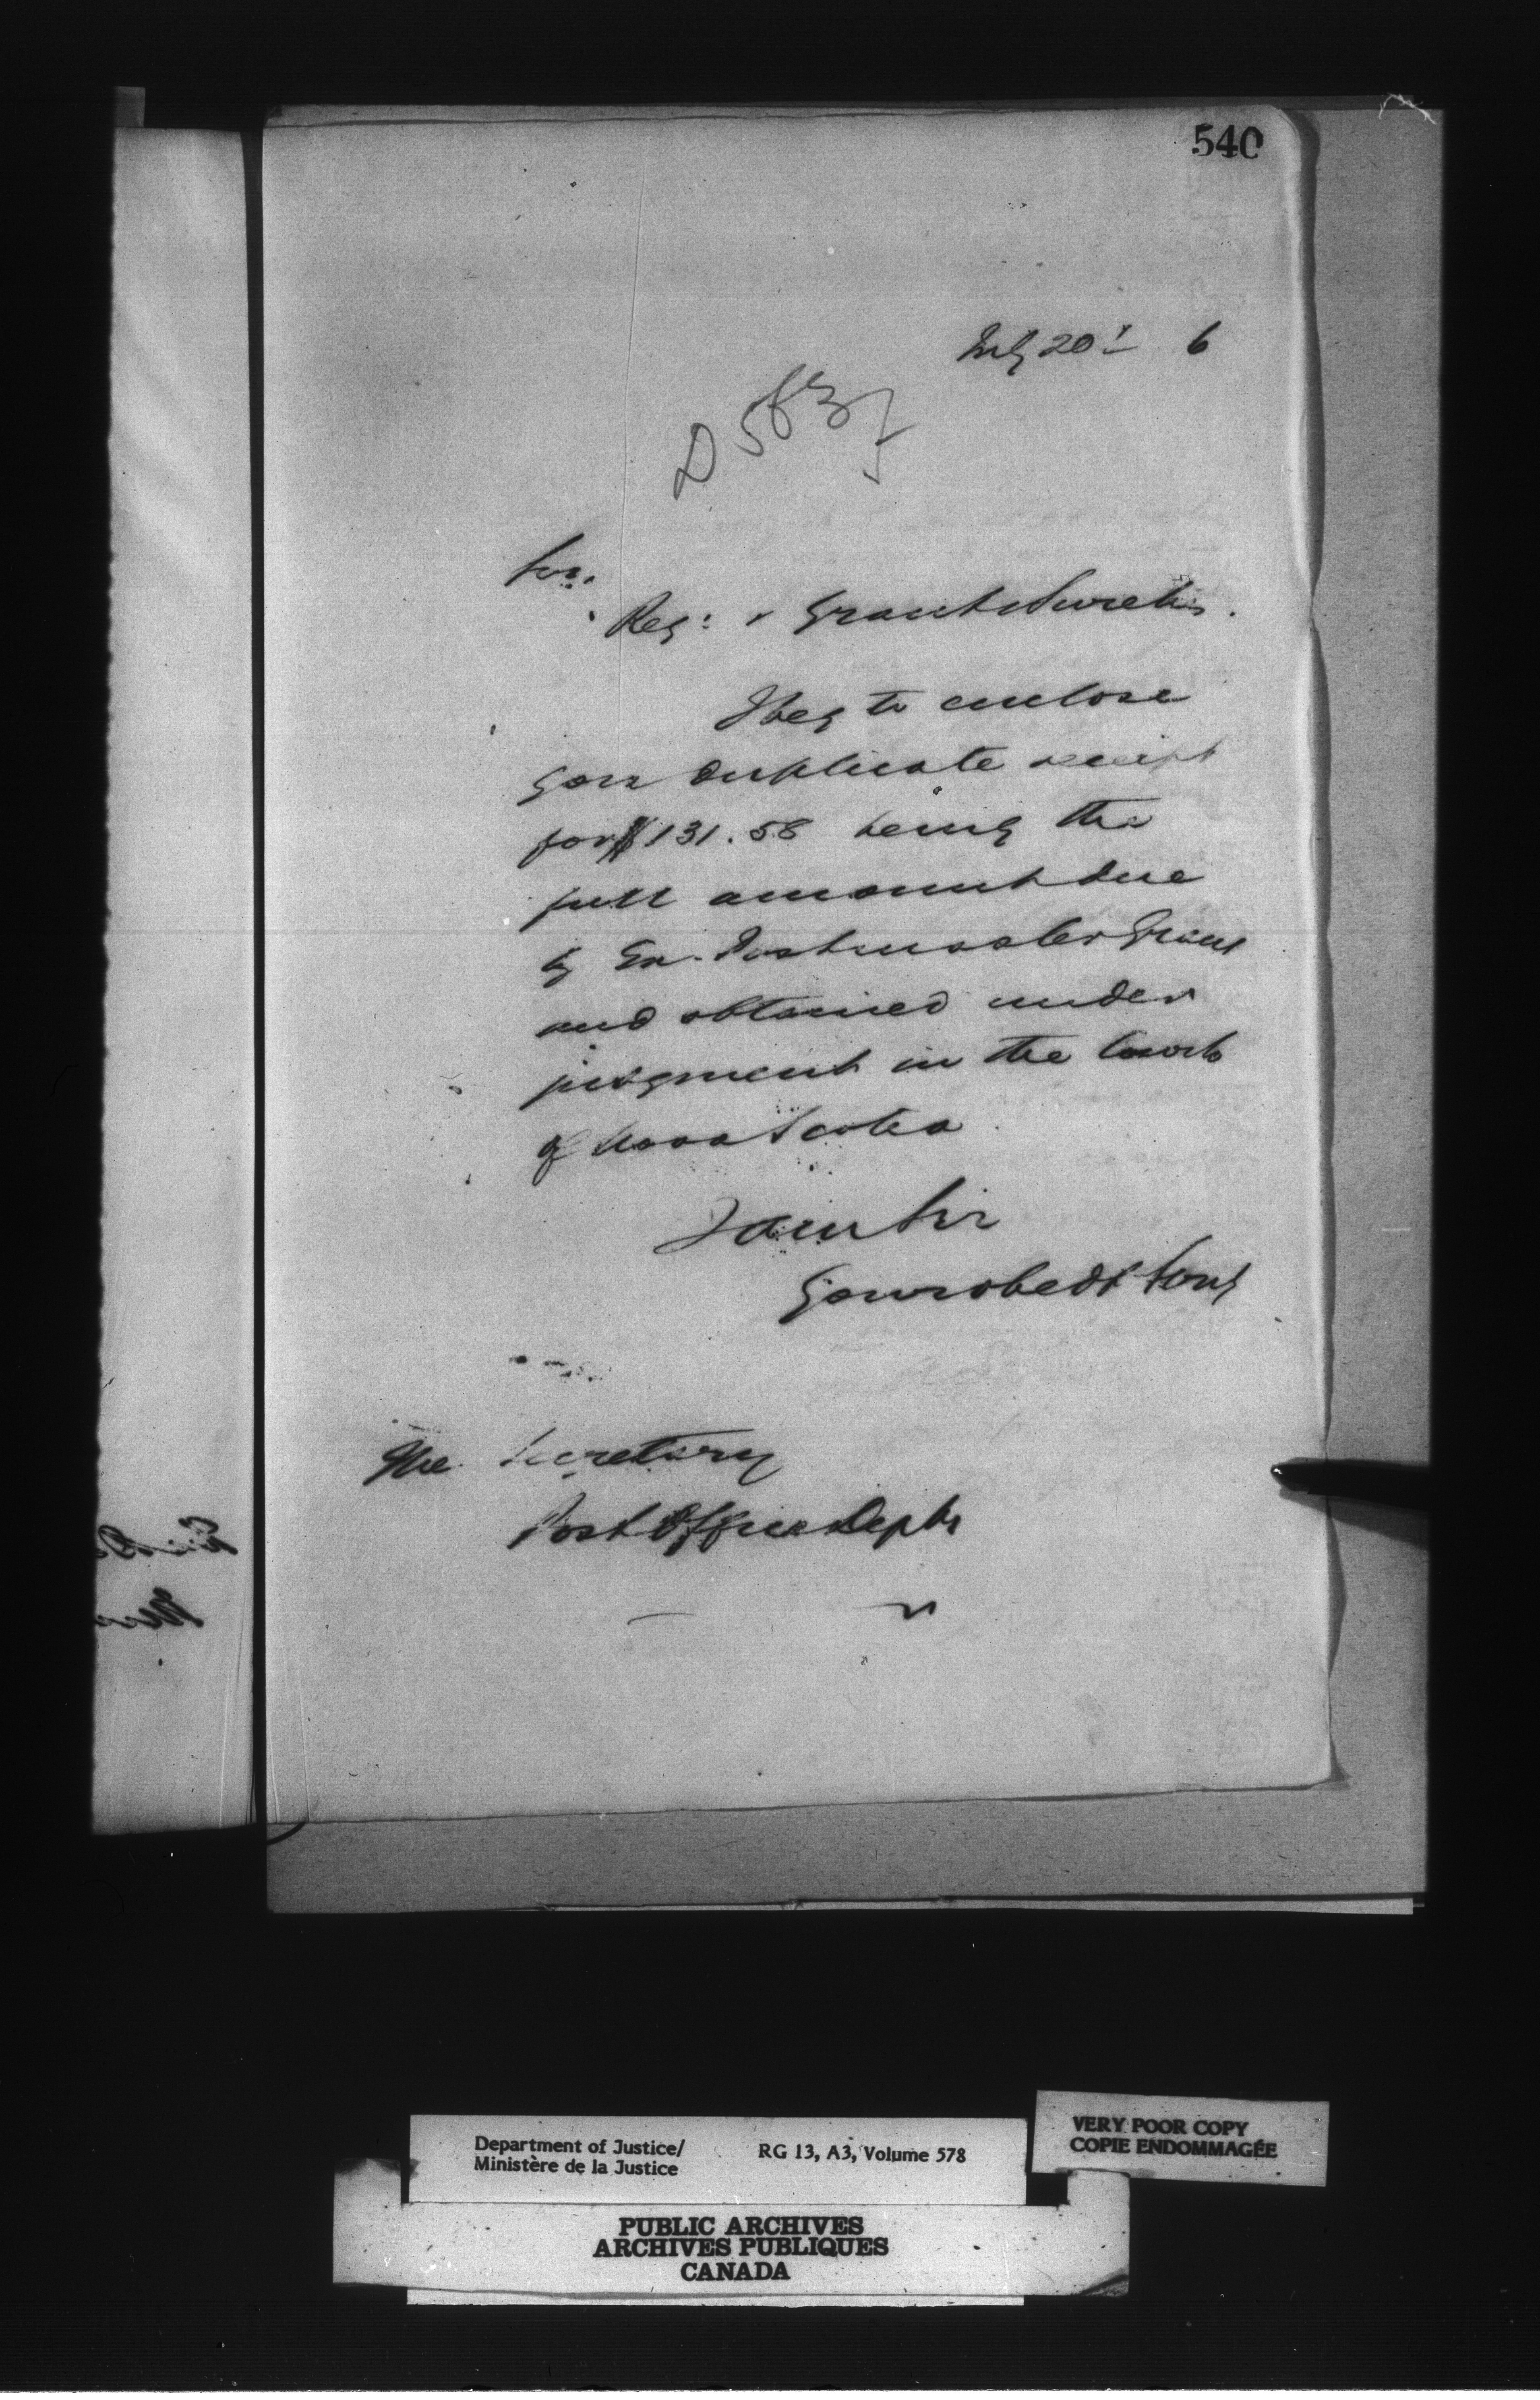 540
July 20th 6
D 583
Sir.
Reg: v Grant & Sureties.
I beg to enclose
you duplicate receipt
for $131.58 being the
full amount due
by Ex-Postmaster Grant
and obtained under
judgment in the Courts
of Nova Scotia.
I am Sir
Your obedt Servt
The Secretary
Post Office Dept
Department of Justice/
Ministère de la Justice
RG 13, A3, Volume 578
VERY POOR COPY
COPIE ENDOMMAGÉE
PUBLIC ARCHIVES
ARCHIVES PUBLIQUES
CANADA